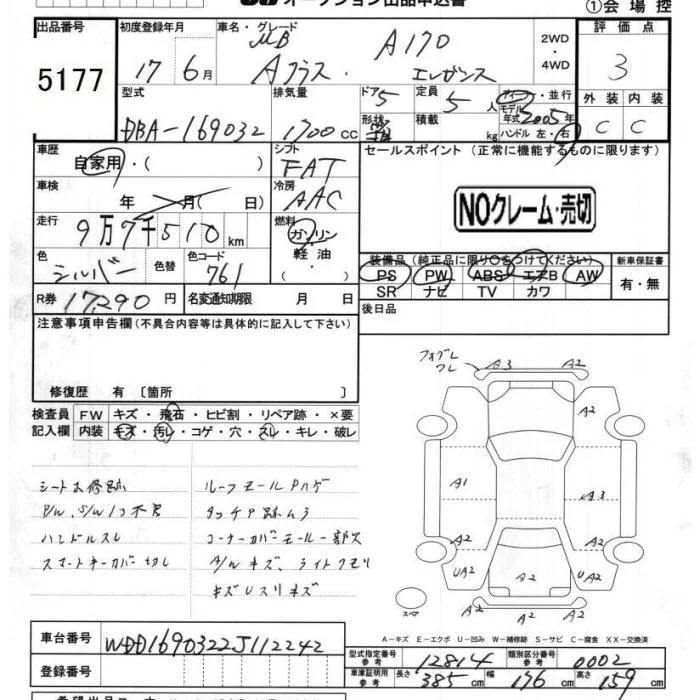 オークション出品申込書
①会場控
出品番号
5177
初度登録年月
17年 6月
車名・グレード
MB
Aクラス・
A170
エレガンス
2WD
・
4WD
評価点
3
外装 内装
C C
型式
DBA-169032
排気量
1700cc
ドア 5
形状
定員 5人
積載 kg
ディーラー・並行
モデル
年式 2005年
ハンドル 左・右
車歴
自家用・( )
シフト
FAT
セールスポイント(正常に機能するものに限ります)
NOクレーム・売切
車検
年 月( 日)
冷房
AAC
走行
9万7千510km
燃料
ガソリン
軽油
( ・ )
色
シルバー
色替
色コード
761
装備品(純正品に限り○をつけてください)
PS PW ABS エアB AW
SR ナビ TV カワ
新車保証書
有・無
R券 17,290円
名変通知期限 月 日
後日品
注意事項申告欄(不具合内容等は具体的に記入して下さい)
修復歴 有〔箇所 〕
検査員
記入欄
FW キズ・飛石・ヒビ割・リペア跡・×要
内装 キズ・汚レ・コゲ・穴・スレ・キレ・破レ
シート お修跡
P/W、S/W 1つ不良
ハンドルスレ
スマートキーカバー切し
ルーフモールPハゲ
タッチP跡ムラ
コーナーカバーモール一部欠
A/Wキズ、ライトクモリ
キズUスリキズ
フォグレ
ワレ
A3
A2
A2
A1
A3
A2
A2
UA2
A2
UA2
A2
スペア
A-キズ E-エクボ U-凹み W-補修跡 S-サビ C-腐食 XX-交換済
車台番号
WDD1690322J112242
登録番号
型式指定番号
参考
12814
類別区分番号
参考
0002
車庫証明用
参考
長さ 385cm 幅 176cm 高さ 159cm